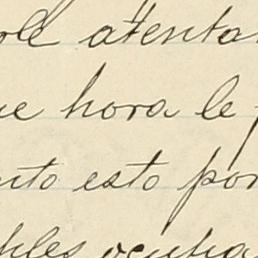 atenta
ue hora le
nto esto por
bles ocupa